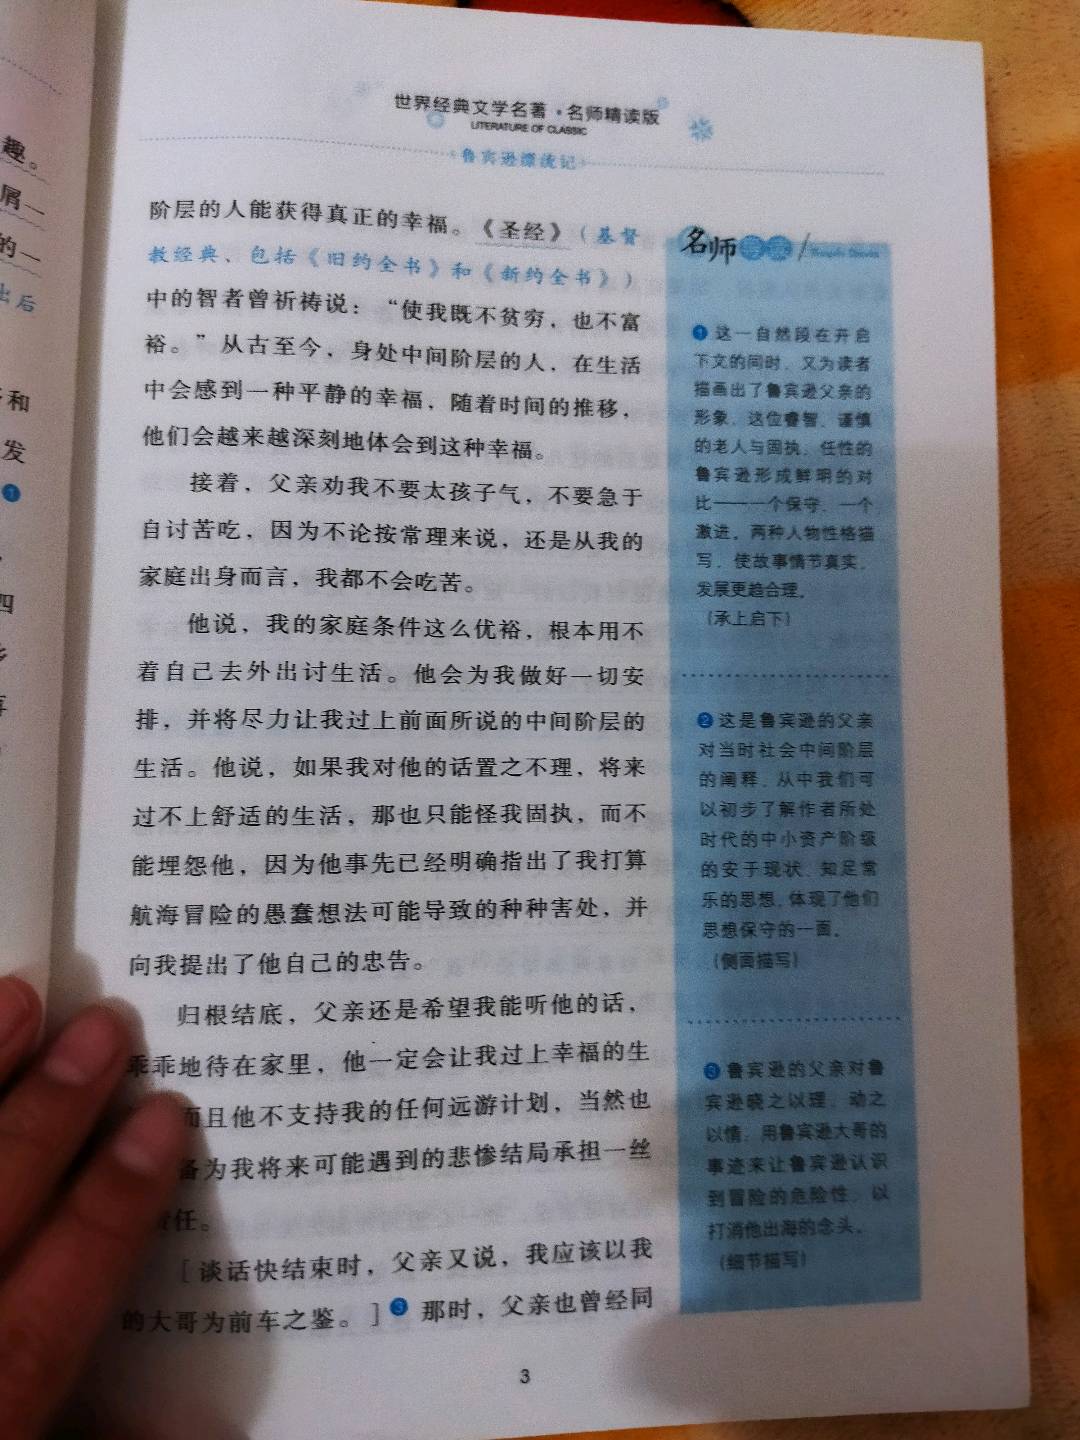 趣。
屑—
的一
出后
和
发
1
四
世界经典文学名著·名师精读版
LITERATURE OF CLASSIC
鲁宾逊漂流记
阶层的人能获得真正的幸福。《圣经》（基督
教经典、包括《旧约全书》和《新约全书》）
中的智者曾祈祷说：“使我既不贫穷，也不富
裕。”从古至今，身处中间阶层的人，在生活
中会感到一种平静的幸福，随着时间的推移，
他们会越来越深刻地体会到这种幸福。
接着，父亲劝我不要太孩子气，不要急于
自讨苦吃，因为不论按常理来说，还是从我的
家庭出身而言，我都不会吃苦。
他说，我的家庭条件这么优裕，根本用不
着自己去外出讨生活。他会为我做好一切安
排，并将尽力让我过上前面所说的中间阶层的
生活。他说，如果我对他的话置之不理，将来
过不上舒适的生活，那也只能怪我固执，而不
能埋怨他，因为他事先已经明确指出了我打算
航海冒险的愚蠢想法可能导致的种种害处，并
向我提出了他自己的忠告。
归根结底，父亲还是希望我能听他的话，
乖乖地待在家里，他一定会让我过上幸福的生
而且他不支持我的任何远游计划，当然也
备为我将来可能遇到的悲惨结局承担一丝
责任。
［谈话快结束时，父亲又说，我应该以我
的大哥为前车之鉴。］3 那时，父亲也曾经同
名师导读
1 这一自然段在开启
下文的同时，又为读者
描画出了鲁宾逊父亲的
形象，这位睿智、谨慎
的老人与固执、任性的
鲁宾逊形成鲜明的对
比——一个保守，一个
激进。两种人物性格描
写，使故事情节真实，
发展更趋合理。
（承上启下）
2 这是鲁宾逊的父亲
对当时社会中间阶层
的阐释，从中我们可
以初步了解作者所处
时代的中小资产阶级
的安于现状、知足常
乐的思想，体现了他们
思想保守的一面。
（侧面描写）
3 鲁宾逊的父亲对鲁
宾逊晓之以理，动之
以情，用鲁宾逊大哥的
事迹来让鲁宾逊认识
到冒险的危险性，以
打消他出海的念头。
（细节描写）
3